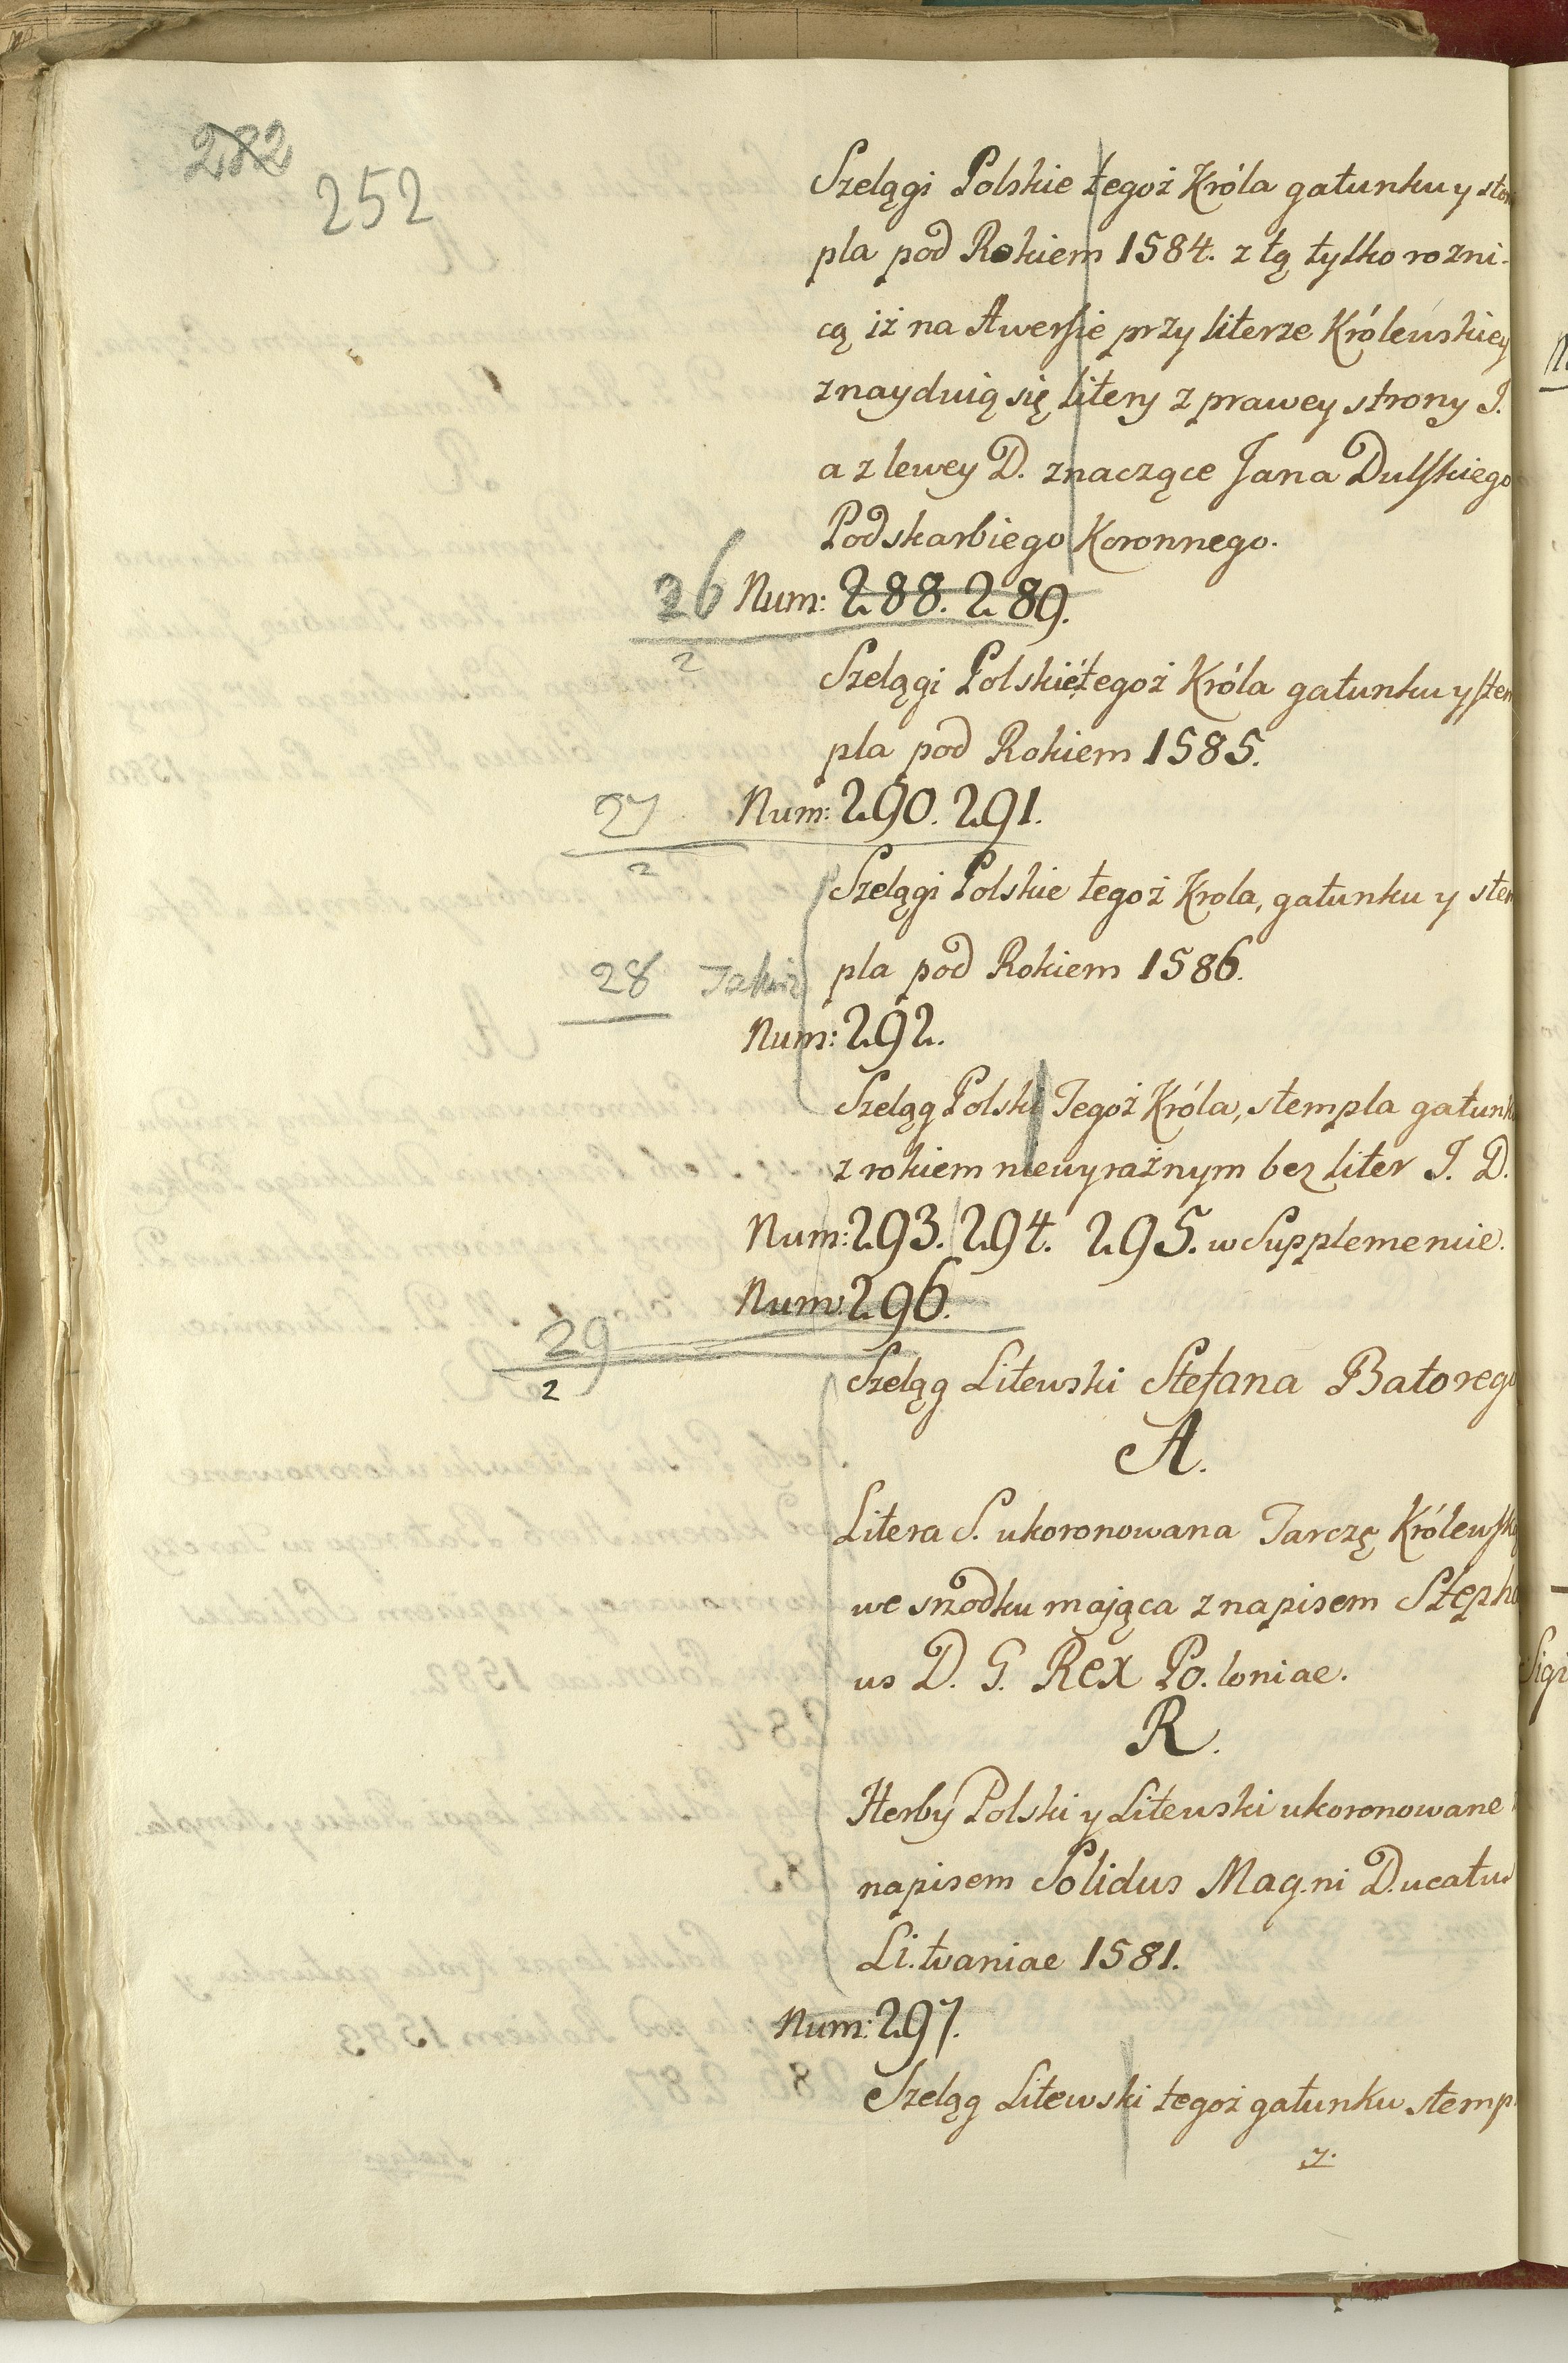 282
252
Szelągi Polskie tegoż Króla gatunku y stem
pla pod Rokiem 1584. z tą tylko rozni-
cą iż na Awersie przy literze Królewskiey
znayduią się litery z prawey strony J.
a z lewey D. znaczące Jana Dulskiego
Podskarbiego Koronnego.
26 Num: 288. 289.
2
Szelągi Polskie tegoż Króla gatunku y stem
pla pod Rokiem 1585.
27 Num: 290. 291.
2
Szelągi Polskie tegoż Krola, gatunku y stem
28 Takiż pla pod Rokiem 1586.
Num: 292.
Szeląg Polski Tegoż Króla, stempla gatunku
z rokiem niewyraźnym bez liter J. D.
Num: 293. 294. 295. w Supplemencie.
Num: 296.
29
2
Szeląg Litewski Stefana Batorego
A.
Litera S. ukoronowana Tarczę Królewską
we srzodku mająca z napisem Stepha
us D. G. Rex Po. loniae.
R.
Herby Polski y Litewski ukoronowane
napisem Solidus Mag.ni D.ucatus
Li.tvaniae 1581.
Num: 297.
Szeląg Litewski tegoż gatunku stemp